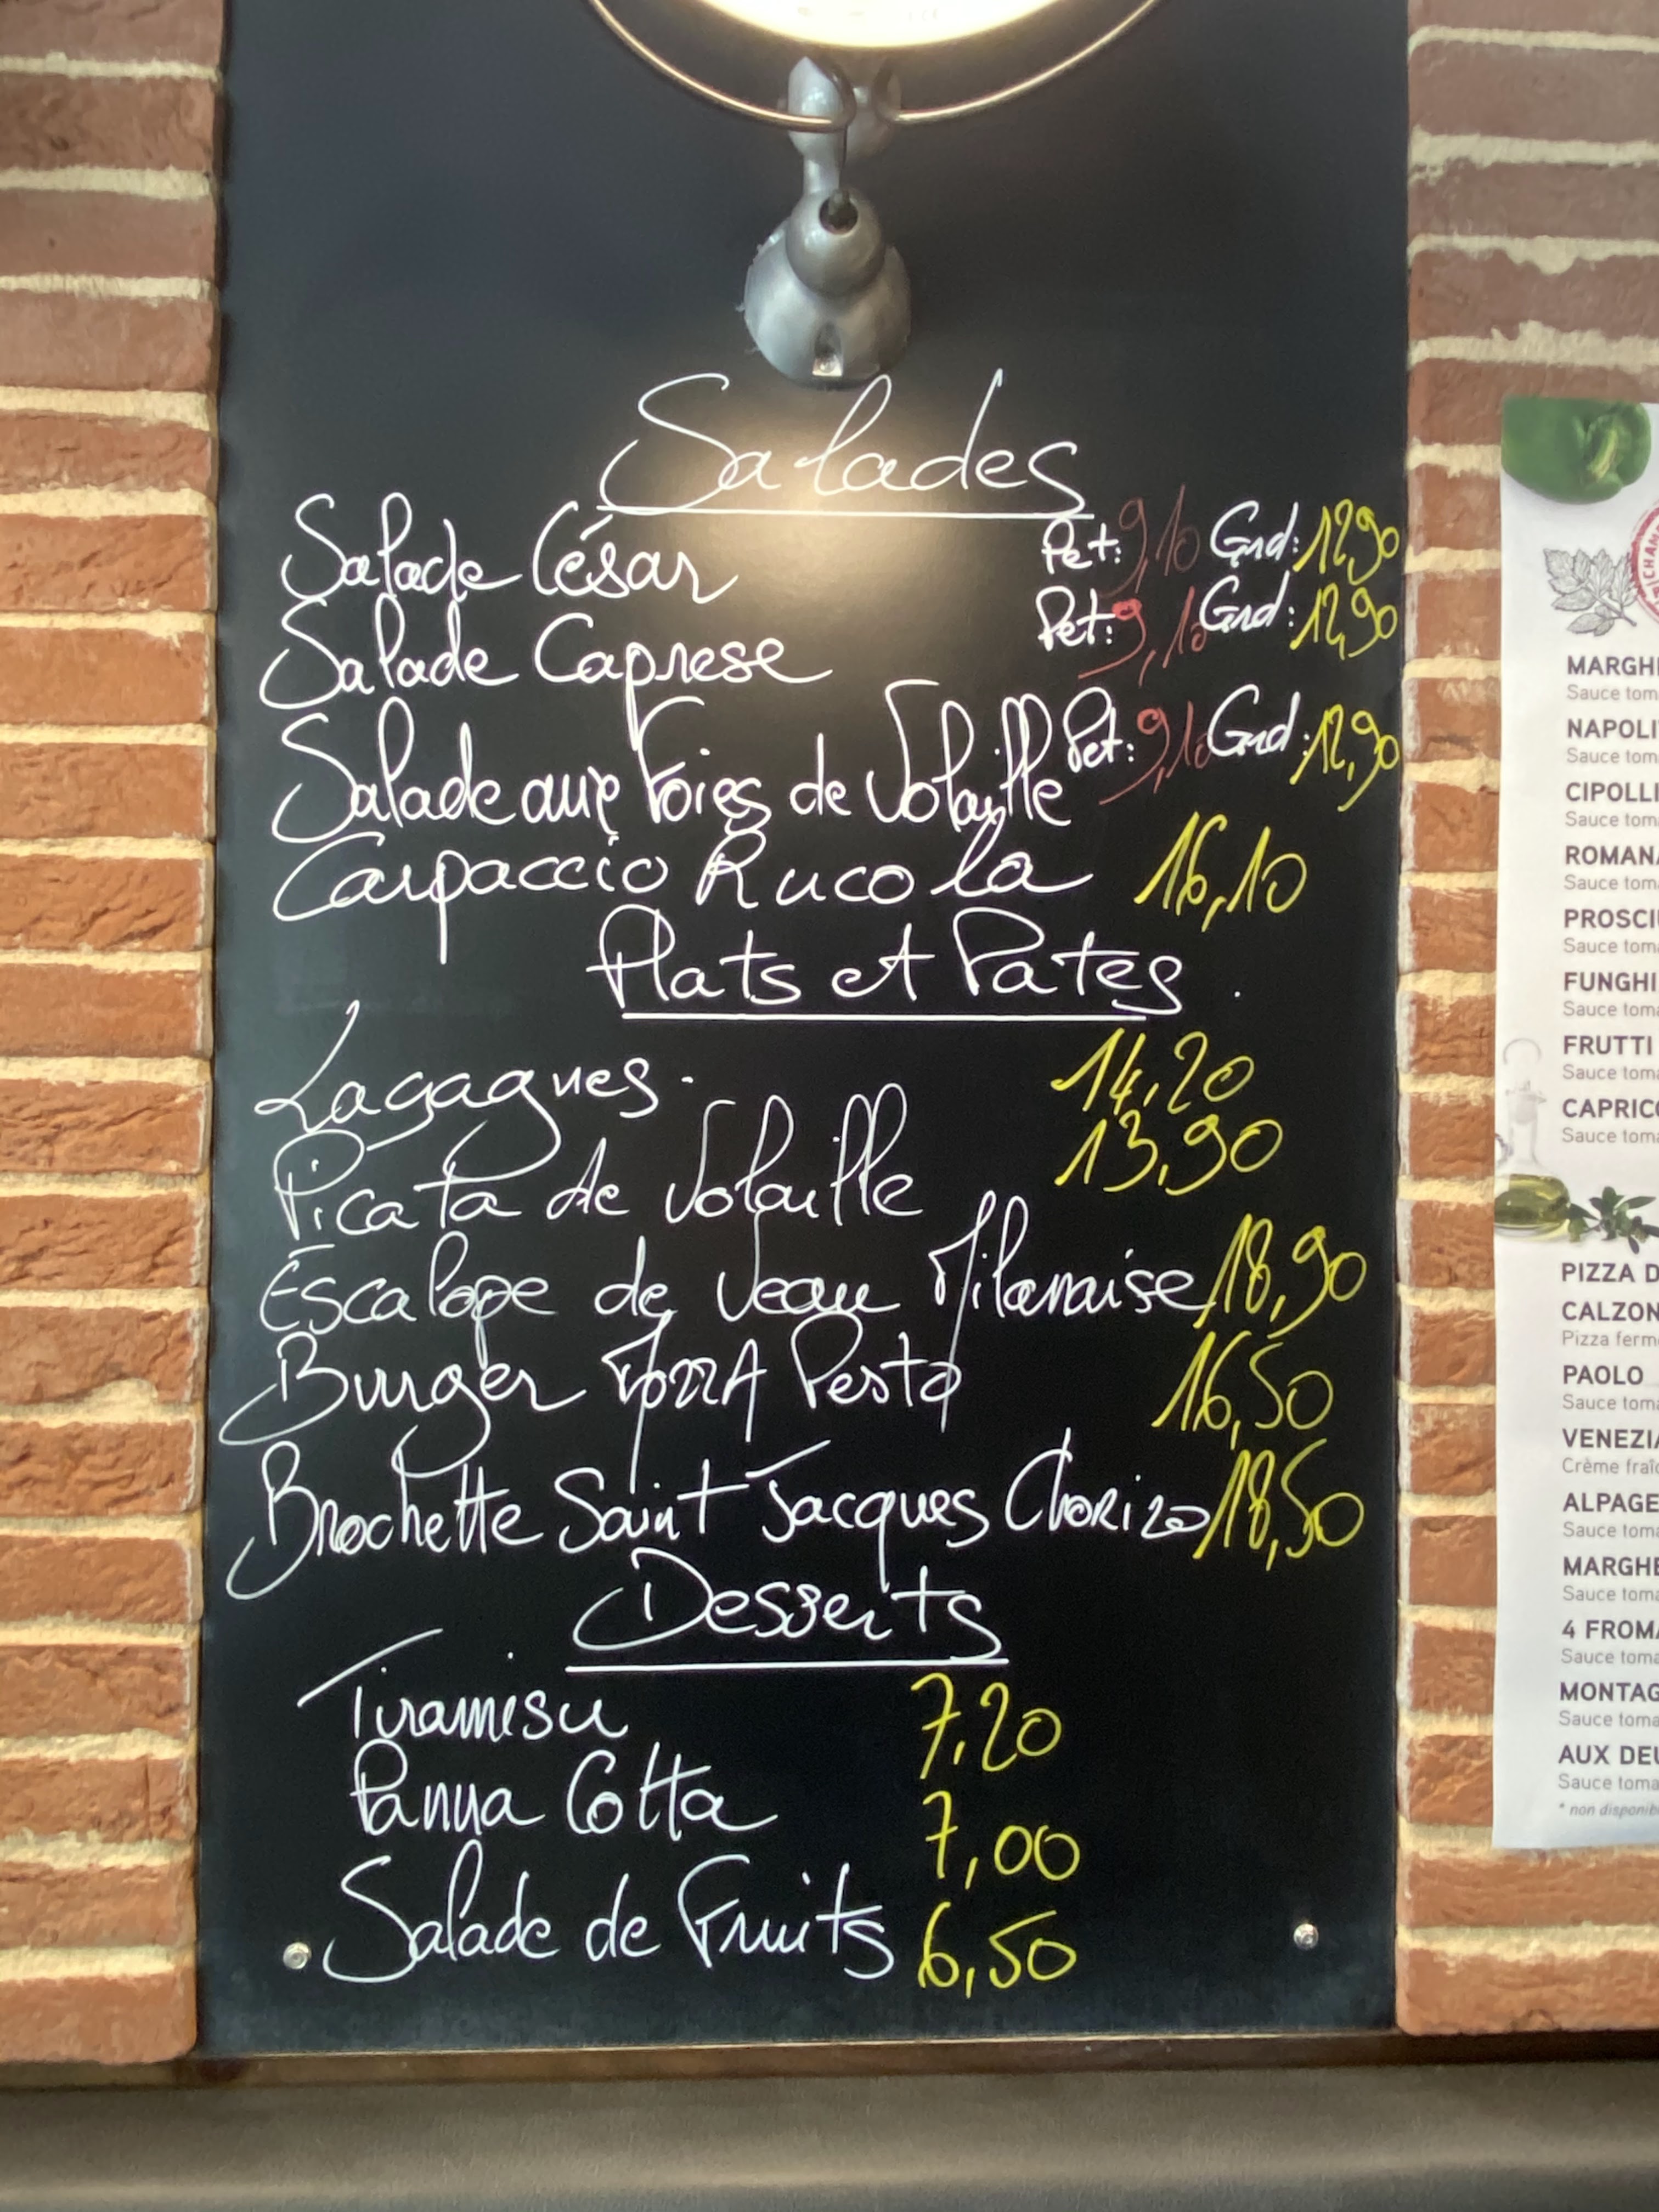 Salades
Salade César Pet: 9,10 Grd: 12,90
Salade Caprese Pet: 9,10 Grd: 12,90
Salade aux Foies de Volaille Pet: 9,10 Grd: 12,90
Carpaccio Rucola 16,10
Plats et Pates
Lasagnes 14,20
Picata de Volaille 13,90
Escalope de Veau Milanaise 18,90
Burger MozzA Pesto 16,50
Brochette Saint Jacques Chorizo 18,50
Desserts
Tiramisu 7,20
Panna Cotta 7,00
Salade de Fruits 6,50
MARGH
Sauce tom
NAPOLI
Sauce tom
CIPOLLI
Sauce tom
ROMAN
Sauce tom
PROSCI
Sauce tom
FUNGHI
Sauce tom
FRUTTI
Sauce tom
CAPRIC
Sauce tom
PIZZA D
CALZON
Pizza ferm
PAOLO
Sauce tom
VENEZI
Crème fraî
ALPAGE
Sauce tom
MARGHE
Sauce tom
4 FROMA
Sauce toma
MONTAG
Sauce toma
AUX DEU
Sauce toma
* non disponib